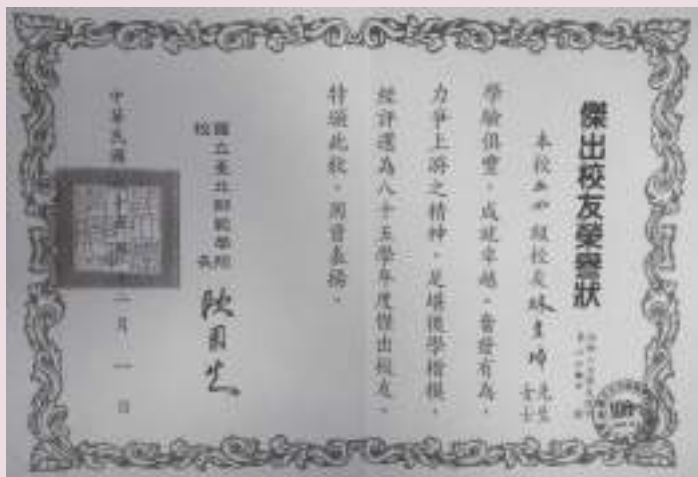 傑出校友榮譽狀
本校五四級校友林 先生
女士
學驗俱豐，成就卓越，奮發有為，
力爭上游之精神，足堪後學楷模，
經評選為八十五學年度傑出校友，
特頒此狀，用資表揚。
國立臺北師範學院
校長
中華民國 十五年十二月一日